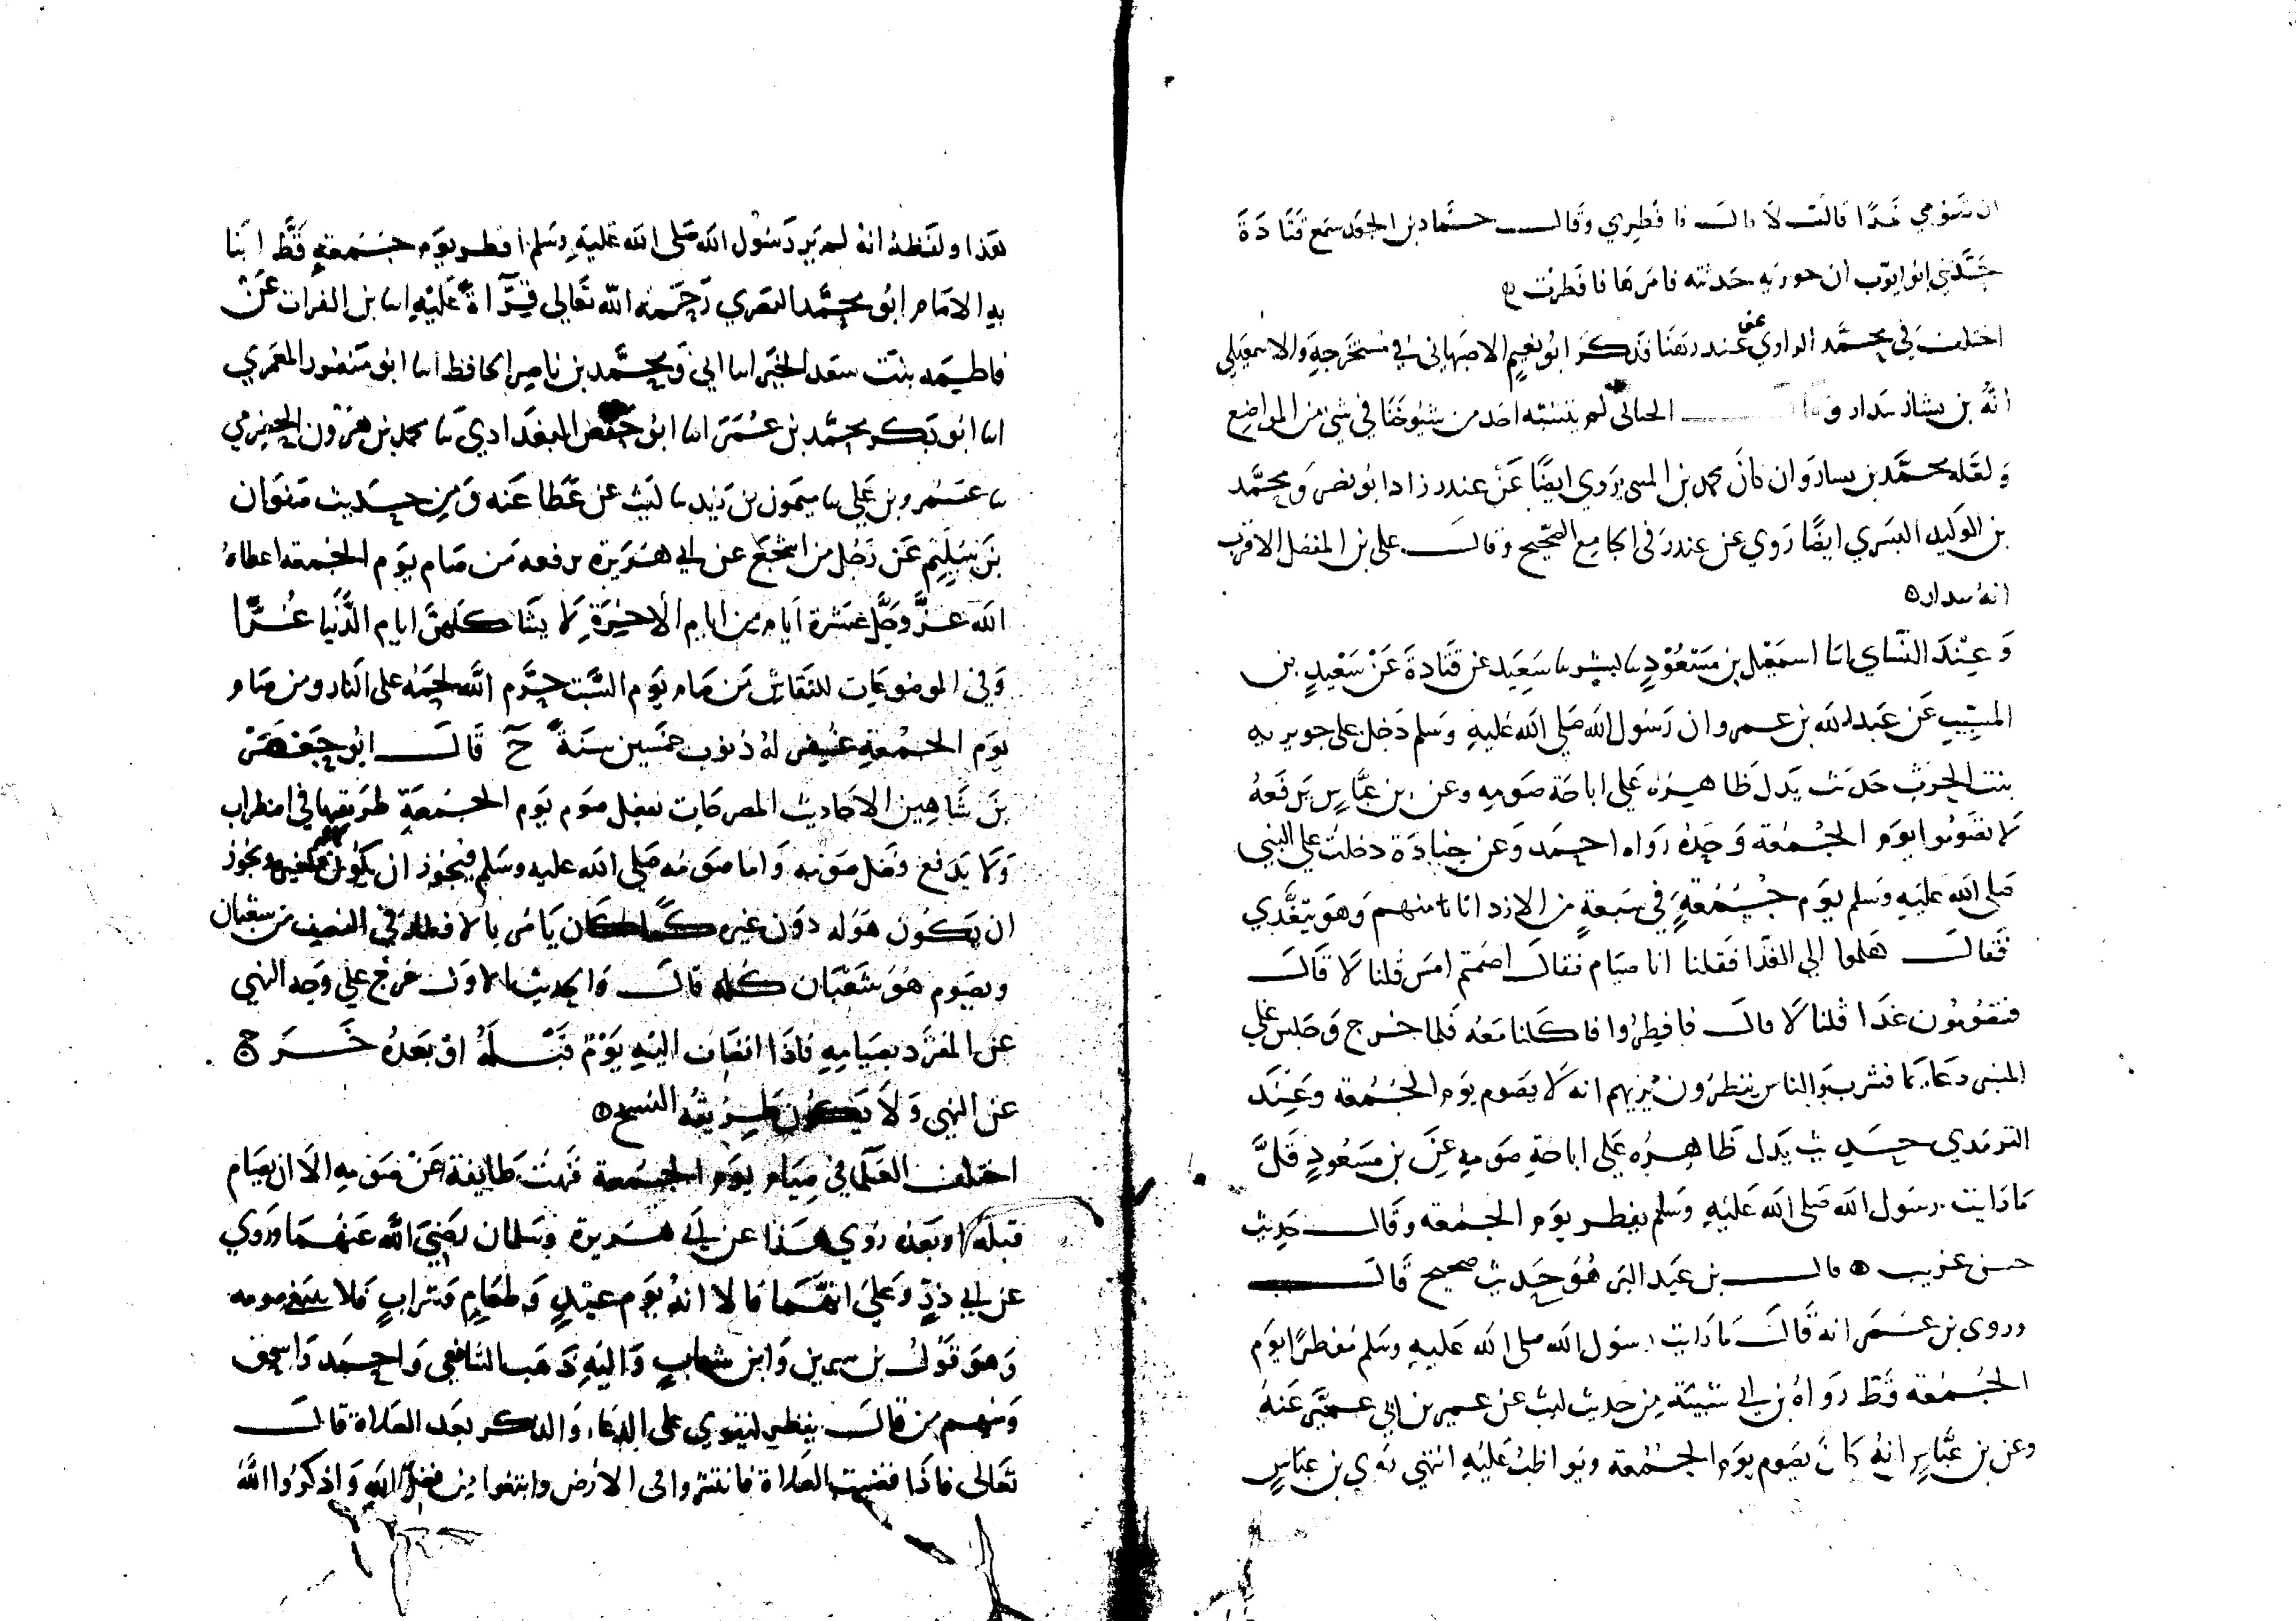 ان تصومي غدا قالت لا قال فافطري وقال حماد بن الجعد سمع قتادة
حدثني ابو ايوب ان جويريه حدثته فامرها فافطرت
اختلف في محمد الراوي عن غندر هنا فذكر ابو نعيم الاصبهاني في مستخرجه والاسمعيلي
انه بن بشار بندار وقال الجياني لم ينسبه احد من شيوخنا في شيء من المواضع
ولعله محمد بن بشار وان كان محمد بن المثنى يروي ايضا عن غندر زاد ابو نصر ومحمد
بن الوليد البسري ايضا روي عن غندر في الجامع الصحيح وقال علي بن المفضل الاقرب
انه بندار
وعند النساي انا اسمعيل بن مسعود نا بشر نا سعيد عن قتادة عن سعيد بن
المسيب عن عبد الله بن عمرو ان رسول الله صلى الله عليه وسلم دخل على جويريه
بنت الحرث حديث يدل ظاهره على اباحة صومه وعن بن عباس يرفعه
لا تصوموا يوم الجمعة وحده رواه احمد وعن جنادة دخلت على النبي
صلى الله عليه وسلم يوم جمعة في سبعة من الازد انا منهم وهو يتغدي
فقال هلموا الي الغدا فقلنا انا صيام فقال اصمتم امس قلنا لا قال
فتصومون غدا قلنا لا قال فافطروا فاكلنا معه فلما خرج وجلس علي
المنبر دعا بما فشرب والناس ينظرون يريهم انه لا يصوم يوم الجمعة وعند
الترمدي حديث يدل ظاهره على اباحة صومه عن بن مسعود قل
ما رايت رسول الله صلى الله عليه وسلم يفطر يوم الجمعه وقال حديث
حسن غريب قال بن عبد البر هو حديث صحيح قال
وروى بن عمر انه قال ما رايت رسول الله صلى الله عليه وسلم مفطرا يوم
الجمعة قط رواه بن ابي شيبة من حديث ليث عن عمير بن ابي عمير عنه
وعن بن عباس انه كان يصوم يوم الجمعة ويواظب عليه انتهي روي بن عباس
هذا ولفظه انه لم ير رسول الله صلى الله عليه وسلم افطر يوم جمعة قط ابنا
به الامام ابو محمد البصري رحمه الله تعالى قراة عليه انا بن الفرات عن
فاطمه بنت سعد الخير انا ابي ومحمد بن ناصر الحافظ انا ابو منصور المعمري
انا ابو بكر محمد بن عمر انا ابو حفص البغدادي نا محمد بن هرون الحضرمي
نا عمرو بن علي نا ميمون بن زيد نا ليث عن عطا عنه ومن حديث صفوان
بن سليم عن رجل من اشجع عن ابي هريرة يرفعه من صام يوم الجمعة اعطاه
الله عز وجل عشرة ايام من ايام الاخرة لا يشاكلهن ايام الدنيا غرا
وفي الموضوعات للنقاش من صام يوم السبت حرم الله لحمه على النار ومن صام
يوم الجمعة غفر له ذنوب خمسين سنة ح قال ابو حفص
بن شاهين الاحاديث المصرحات بفضل صوم يوم الجمعة طريقها في اضطراب
ولا يدفع فضل صومه واما صومه صلى الله عليه وسلم فيجوز ان يكون ويجوز
ان يكون هو له دون غيره كما كان يامر بالافطار في النصف من شعبان
ويصوم هو شعبان كله قال والحديث الاول خرج علي وجه النهي
عن المفرد بصيامه فاذا انضاف اليه يوم قبله او بعده خرج
عن النهي ولا يكون طريقه النسخ
اختلف العلما في صيام يوم الجمعة فنهت طايفة عن صومه الا ان يصام
قبله او بعده روي هذا عن ابي هريرة وسلمان رضي الله عنهما وروي
عن ابي ذر وعلي انهما قالا انه يوم عيد وطعام وشراب فلا ينبغي صومه
وهو قول بن سيرين وابن شهاب واليه ذهب الشافعي واحمد واسحق
ومنهم من قال يفطر ليتقوي على الدعاء والذكر بعد الصلاة قال
تعالى فاذا قضيت الصلاة فانتشروا في الارض وابتغوا من فضل الله واذكروا الله